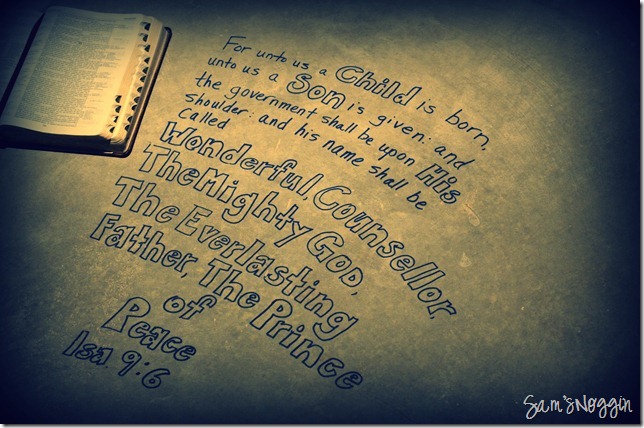 For unto us a Child is born,
unto us a Son is given: and
the government shall be upon His
shoulder: and his name shall be
called
Wonderful, Counsellor,
The Mighty God,
The Everlasting
Father, The Prince
of
Peace
Isa. 9:6
Sam'sNoggin